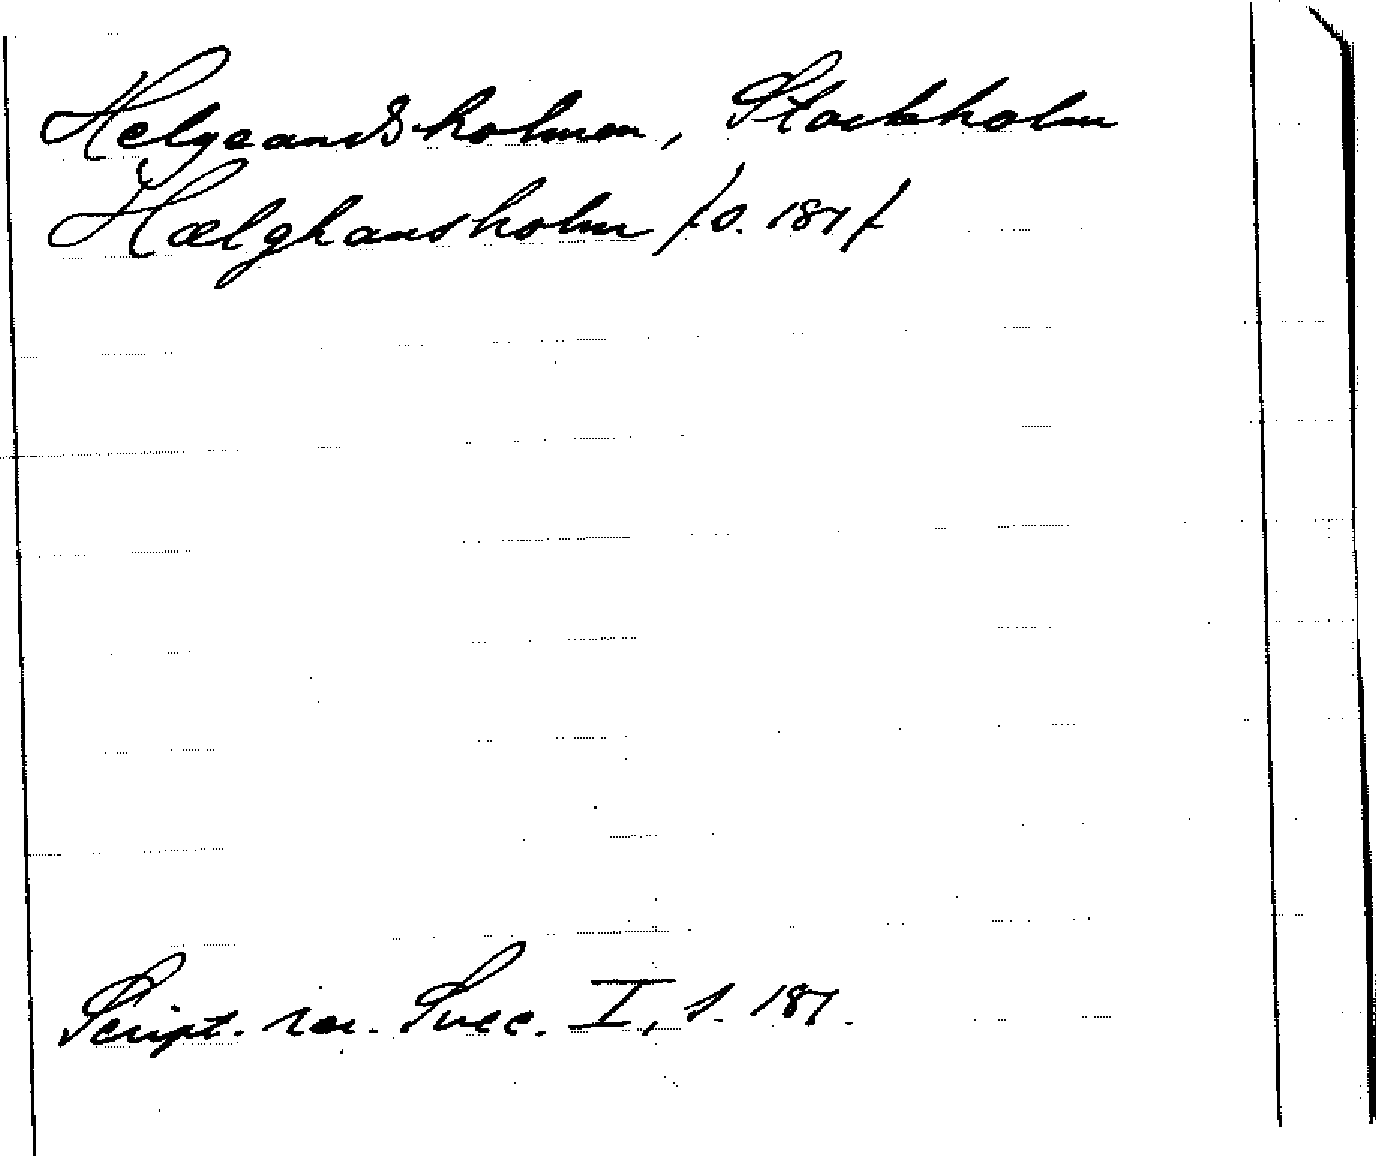 Helgeandsholmen, Stockholm
Hælghansholm /s. 187/
Script. rer. Svec. I, s. 187.